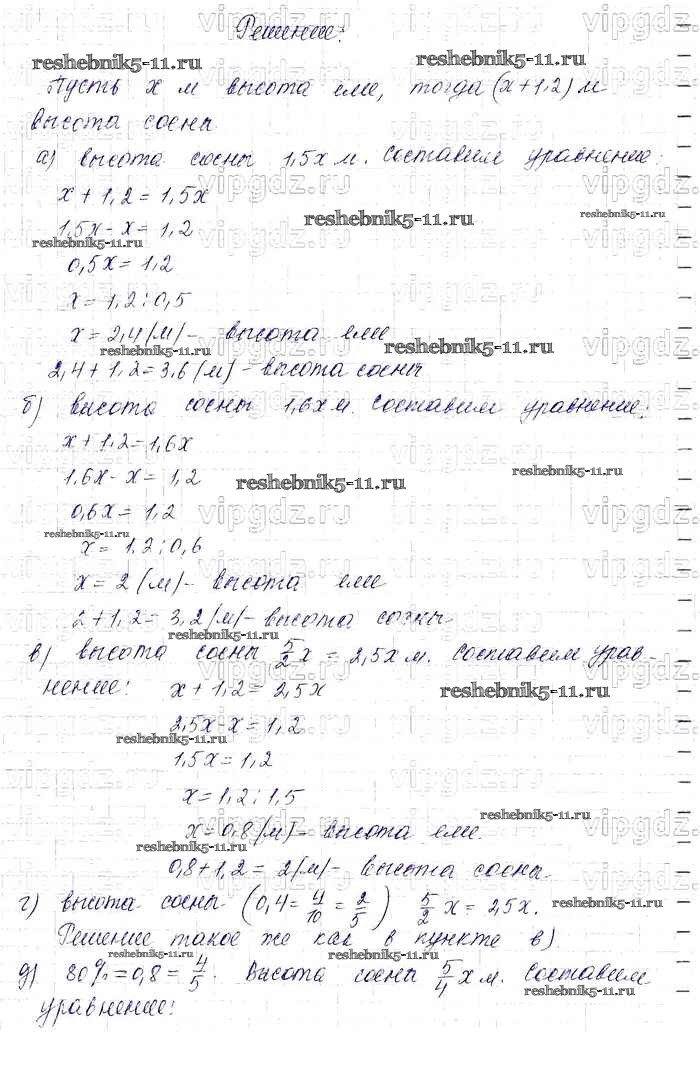 Решение:
Пусть x м высота ели, тогда (x+1,2) м
высота сосны
а) высота сосны 1,5x м. Составим уравнение:
x + 1,2 = 1,5x
1,5x - x = 1,2
0,5x = 1,2
x = 1,2 : 0,5
x = 2,4 (м) - высота ели
2,4 + 1,2 = 3,6 (м) - высота сосны
б) высота сосны 1,6x м. Составим уравнение:
x + 1,2 = 1,6x
1,6x - x = 1,2
0,6x = 1,2
x = 1,2 : 0,6
x = 2 (м) - высота ели
2 + 1,2 = 3,2 (м) - высота сосны
в) высота сосны 5/2 x = 2,5x м. Составим урав-
нение: x + 1,2 = 2,5x
2,5x - x = 1,2
1,5x = 1,2
x = 1,2 : 1,5
x = 0,8 (м) - высота ели.
0,8 + 1,2 = 2 (м) - высота сосны.
г) высота сосны (0,4 = 4/10 = 2/5) 5/2 x = 2,5x.
Решение такое же как в пункте в)
д) 80% = 0,8 = 4/5. Высота сосны 5/4 x м. Составим
уравнение:
reshebnik5-11.ru
vipgdz.ru